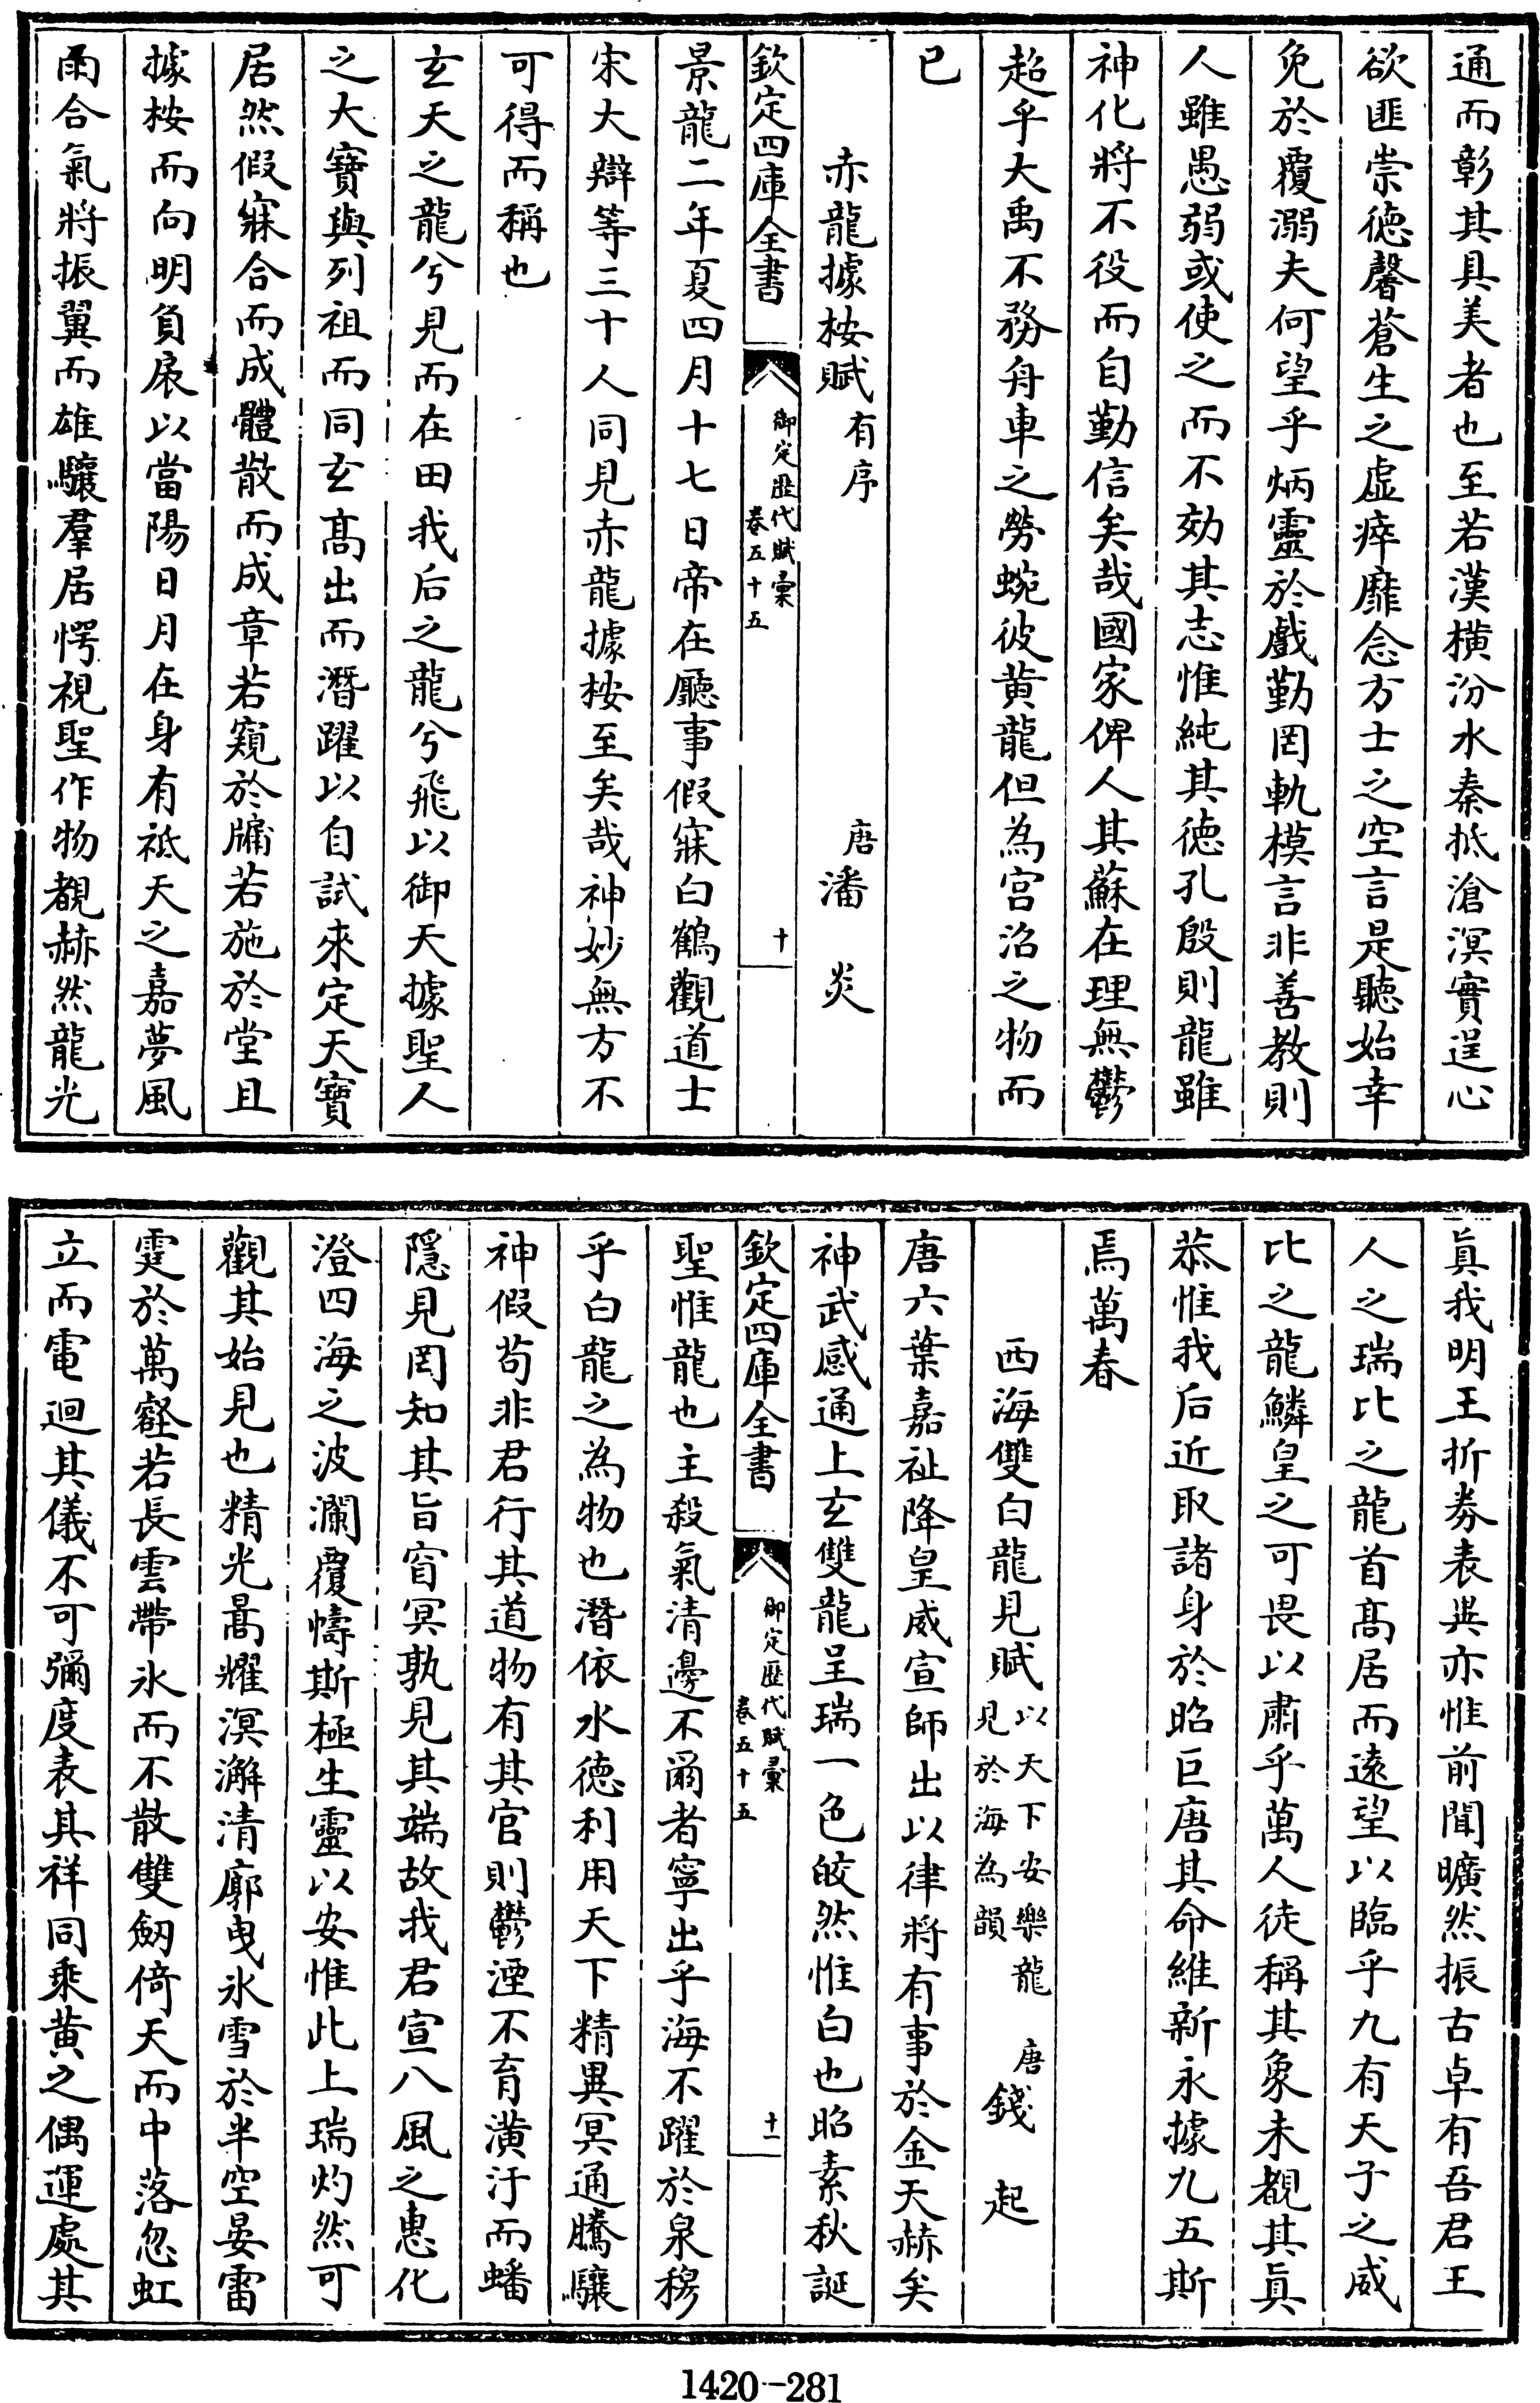 通而彰其具美者也至若漢橫汾水秦抵滄溟實逞心
欲匪崇徳馨蒼生之虚瘁靡念方士之空言是聽始幸
免於覆溺夫何望乎炳靈於戲勤罔軌模言非善教則
人雖愚弱或使之而不効其志惟純其徳孔殷則龍雖
神化將不役而自勤信矣哉國家俾人其蘇在理無鬱
超乎大禹不務舟車之勞蜿彼黄龍但為宫沼之物而
已
赤龍據桉賦有序　唐潘炎
欽定四庫全書　御定歷代賦彙卷五十五　十
景龍二年夏四月十七日帝在廳事假寐白鶴觀道士
宋大辯等三十人同見赤龍據桉至矣哉神妙無方不
可得而稱也
玄天之龍兮見而在田我后之龍兮飛以御天據聖人
之大寶與列祖而同玄髙出而潛躍以自試來定天寶
居然假寐合而成體散而成章若窺於牖若施於堂且
據桉而向明負扆以當陽日月在身有祗天之嘉夢風
雨合氣將振翼而雄驤羣居愕視聖作物覩赫然龍光
真我明王折券表異亦惟前聞曠然振古卓有吾君王
人之瑞比之龍首髙居而逺望以臨乎九有天子之威
比之龍鱗皇之可畏以肅乎萬人徒稱其象未覩其真
恭惟我后近取諸身於昭巨唐其命維新永據九五斯
焉萬春
西海雙白龍見賦以天下安樂龍見於海為韻　唐錢起
唐六葉嘉祉降皇威宣師出以律將有事於金天赫矣
神武感通上玄雙龍呈瑞一色皎然惟白也昭素秋誕
欽定四庫全書　御定歷代賦彙卷五十五　十一
聖惟龍也主殺氣清邊不爾者寧出乎海不躍於泉穆
乎白龍之為物也潛依水徳利用天下精異冥通騰驤
神假茍非君行其道物有其官則鬱湮不育潢汙而蟠
隱見罔知其旨窅冥孰見其端故我君宣八風之惠化
澄四海之波瀾覆幬斯極生靈以安惟此上瑞灼然可
觀其始見也精光髙耀溟澥清廓曳氷雪於半空晏雷
霆於萬壑若長雲帶氷而不散雙劒倚天而中落忽虹
立而電迴其儀不可彌度表其祥同乘黄之偶運處其
1420-281